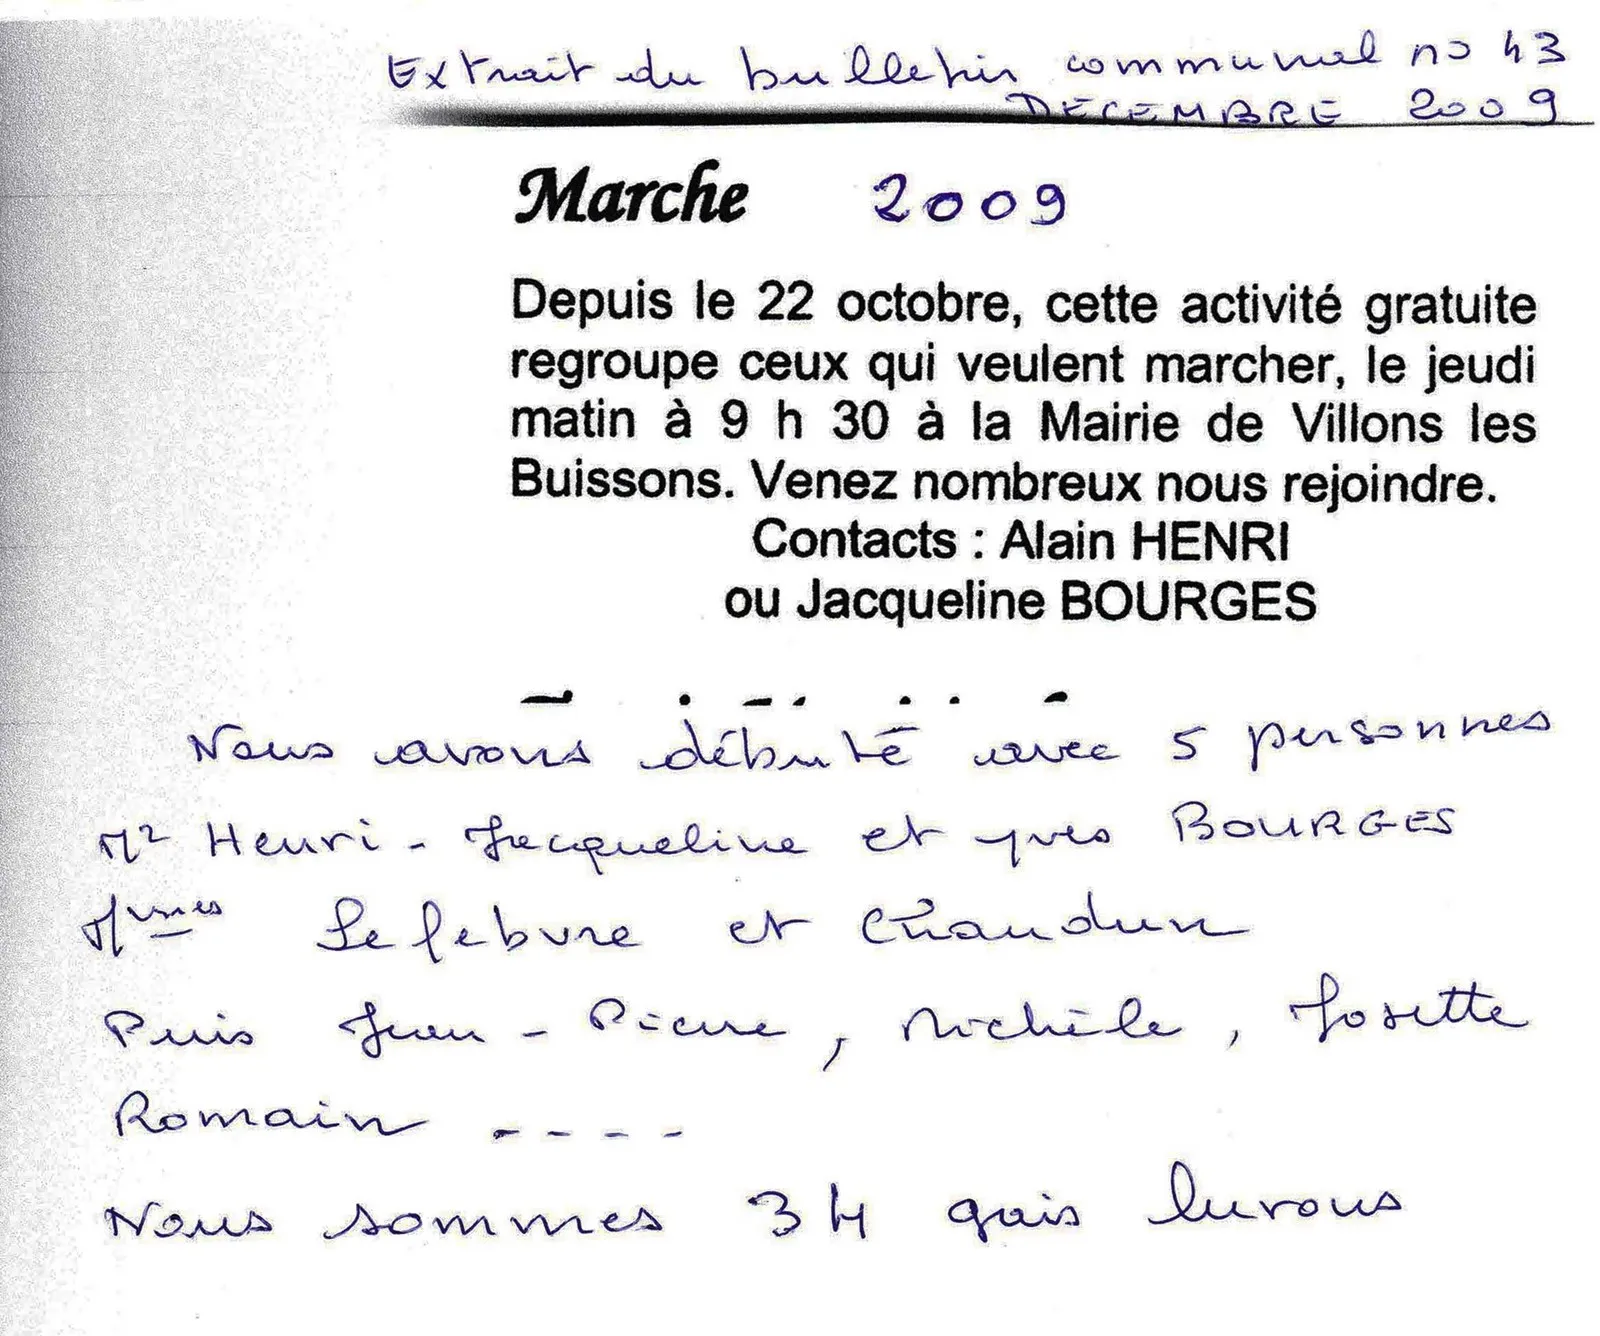 Extrait du bulletin communal no 43
DECEMBRE 2009
Marche 2009
Depuis le 22 octobre, cette activité gratuite
regroupe ceux qui veulent marcher, le jeudi
matin à 9 h 30 à la Mairie de Villons les
Buissons. Venez nombreux nous rejoindre.
Contacts : Alain HENRI
ou Jacqueline BOURGES
Nous avons débuté avec 5 personnes
Mr Henri - Jacqueline et Yves BOURGES
Mmes Lefebvre et
Puis Jean - Pierre, Michèle, Josette
Romain ----
Nous sommes 34 gais lurons